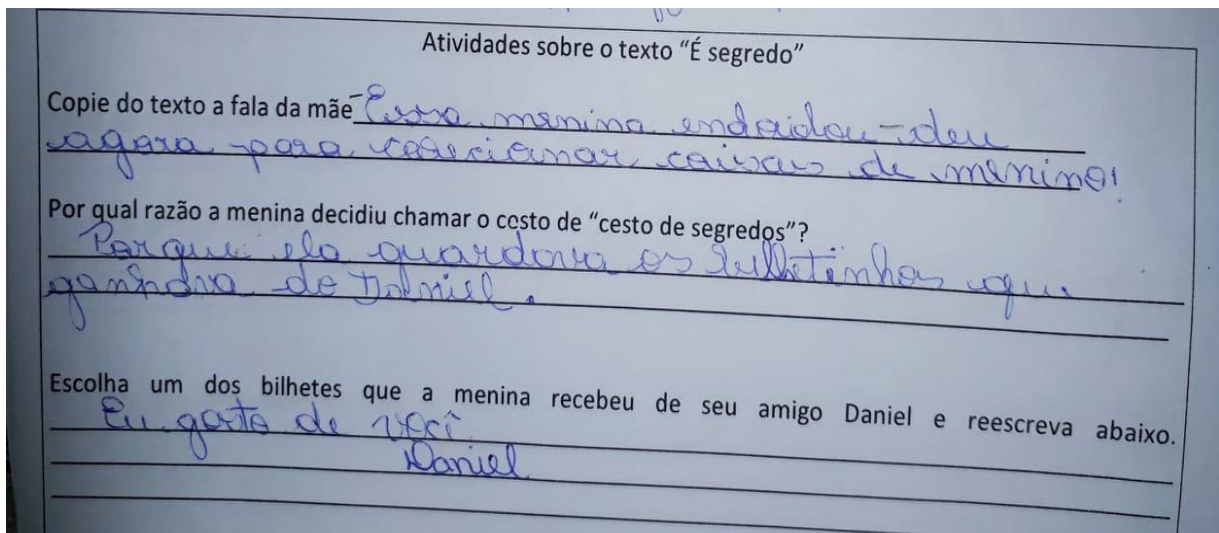 Atividades sobre o texto “É segredo”
Copie do texto a fala da mãe - Essa menina endoidou - deu
agora para colecionar caixas de menino!
Por qual razão a menina decidiu chamar o cesto de “cesto de segredos”?
Porque ela guardava os bilhetinhos que
ganhava do Daniel.
Escolha um dos bilhetes que a menina recebeu de seu amigo Daniel e reescreva abaixo.
Eu gosto de você
Daniel